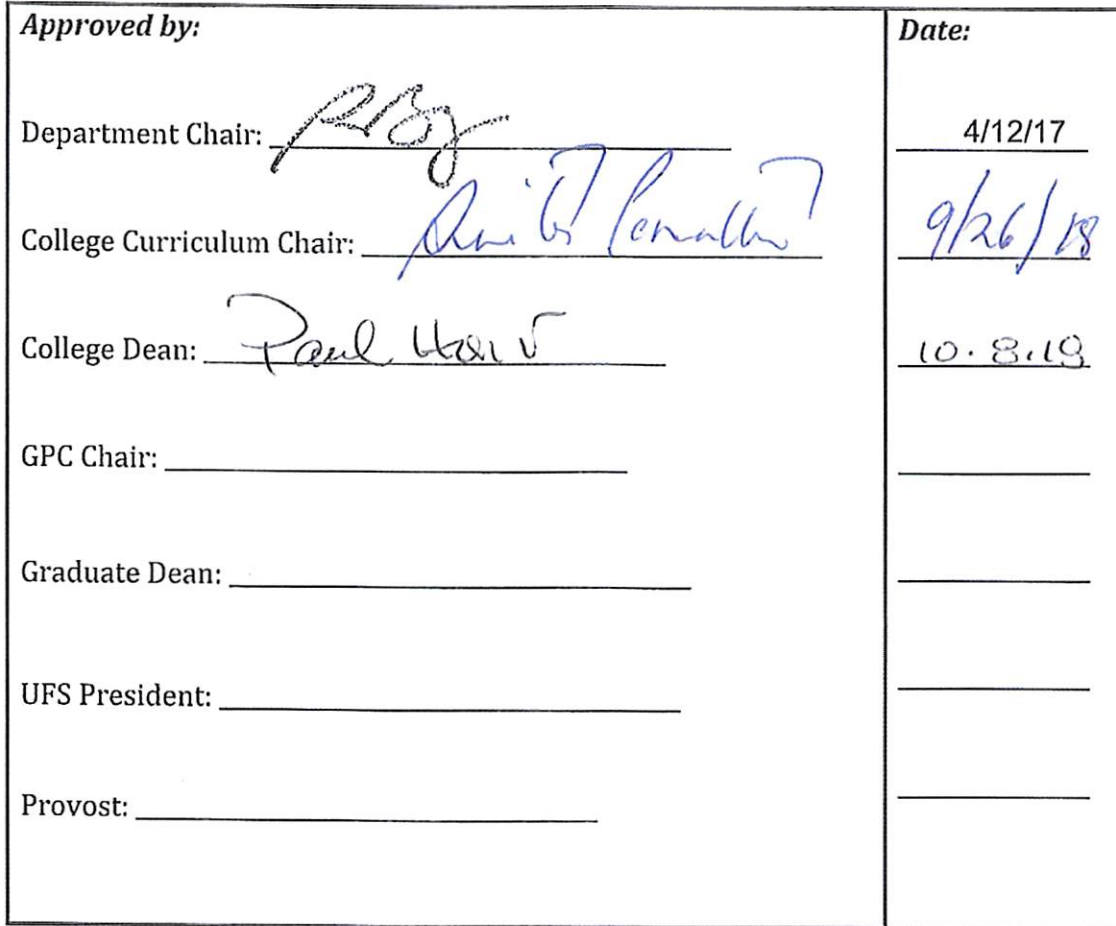 Approved by: Date:
Department Chair: 4/12/17
College Curriculum Chair: 9/26/18
College Dean: Paul 10.8.18
GPC Chair:
Graduate Dean:
UFS President:
Provost: